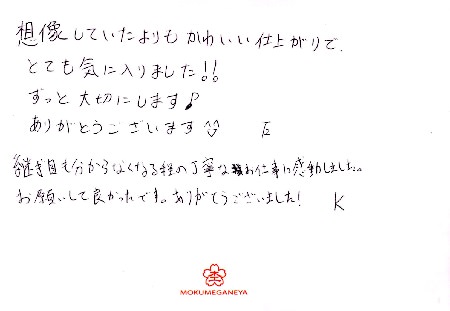 想像していたよりもかわいい仕上がりで、
とても気に入りました!!
ずっと大切にします♪
ありがとうございます E
継ぎ目も分からなくなる程の丁寧なお仕事に感動しました。
お願いして良かったです。ありがとうございました! K
MOKUMEGANEYA